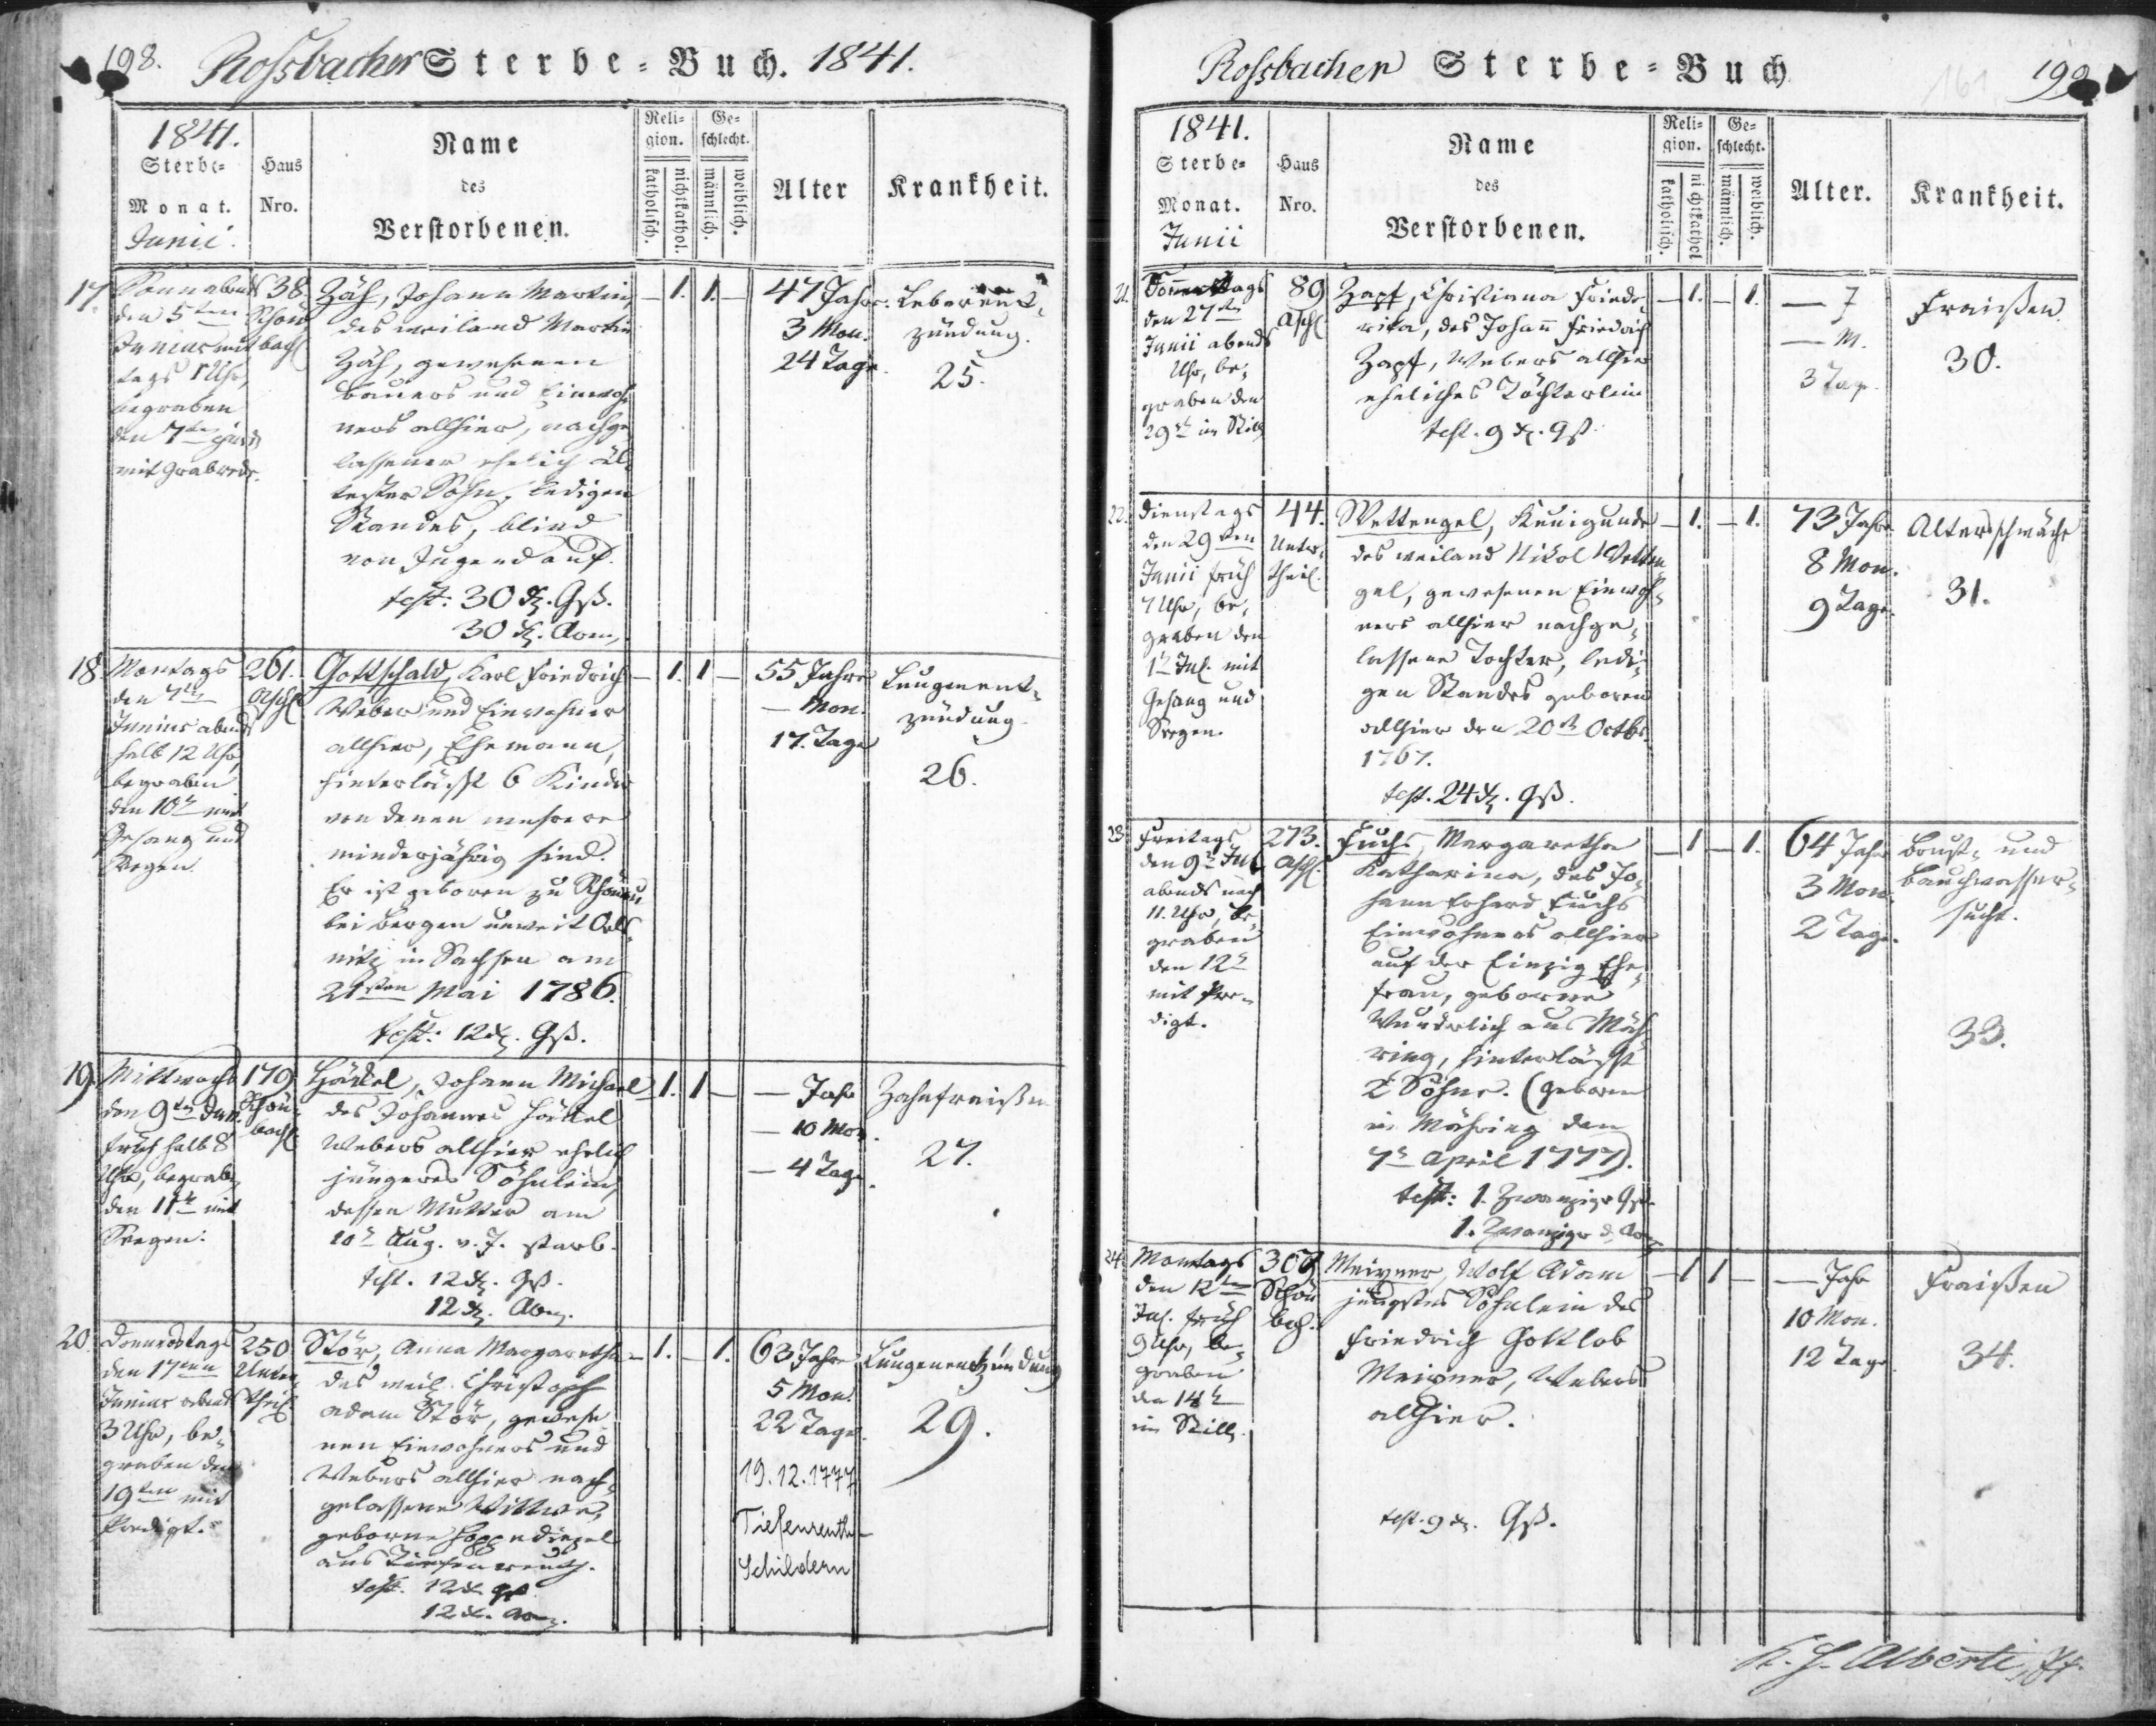 198. Rossbacher Sterbe=Buch. 1841.
1841.
Sterbe=
Monat.
Junii.
Haus
Nro.
Name
des
Verstorbenen.
Reli=
gion.
katholisch.
nichtkathol.
Ge=
schlecht.
männlich.
weiblich.
Alter
Krankheit.
17.
Sonnabends
den 5ten
Junius mit
tags 1 Uhr,
begraben
den 7ten
mit Grabrede.
38.
Schön
bach
Zäh, Johann Martin
des weiland Martin
Zäh, gewesenen
Bauers und Einwoh
ners allhier, nachge
lassener ehelich äl
tester Sohn, ledigen
Standes, blind
von Jugend auf.
test: 30 x. Gß.
30 x. Arm.
— 1. 1. —
47 Jahre.
3 Mon.
24 Tage.
Leberent=
zündung.
25.
18.
Montags
den 7ten
Junius abends
halb 12 Uhr,
begraben
den 10t mit
Gesang und
Segen.
261.
Asch
Gottschald, Karl Friedrich
Weber und Einwohner
allhier, Ehemann,
hinterläßt 6 Kinder
von denen mehrere
minderjährig sind.
Er ist geboren zu
bei Bergen unweit Oels=
nitz in Sachsen am
21sten Mai 1786.
test: 12 x. Gß.
— 1. 1 —
55 Jahre
— Mon.
17. Tage
Lungenent=
zündung.
26.
19.
Mittwochs
den 9ten Jun.
früh halb 8
Uhr, begrab.
den 11t mit
Segen.
179
Schön=
bach
Häckel, Johann Michael
des Johannes Häckel
Webers allhier ehelich
jüngeres Söhnlein,
dessen Mutter am
10t Aug. v. J. starb.
test. 12 x. Gß.
12 x. Arm.
1. 1 —
— Jahr
— 10 Mon.
— 4 Tage.
Zahnfraißen
27.
20.
Donnerstags
den 17ten
Junius abends
3 Uhr, be=
graben den
19ten mit
Predigt.
250
Unter
theil
Stör, Anna Margaretha
des weil. Christoph
Adam Stör, gewese
nen Einwohners und
Webers allhier nach=
gelassene Wittwe,
geborne Hoppendizel
aus Tiefenreuth.
test. 12 x. Gß
12 x. Arm.
— 1. — 1.
63 Jahre
5 Mon.
22 Tage.
19.12.1777
Tiefenreuth-
Schildern
Lungenentzündung
29.
Rossbacher Sterbe=Buch
161
199
1841.
Sterbe=
Monat.
Junii
Haus
Nro.
Name
des
Verstorbenen.
Reli=
gion.
katholisch.
nichtkathol
Ge=
schlecht.
männlich.
weiblich.
Alter.
Krankheit.
21.
Sonntags
den 27ten
Junii abends
Uhr, be=
graben den
29t in Still
89
Asch
Zapf, Christiana Friede=
rika, des Johann Friedrich
Zapf, Webers allhier
eheliches Töchterlein
test. 9 x. Gß
— 1. — 1.
— J
— M.
3 Tag.
Fraißen
30.
22.
Dienstags
den 29ten
Junii früh
7 Uhr, be=
graben den
1t Jul. mit
Gesang und
Segen.
44.
Unter=
theil.
Wettengel, Kunigunde
des weiland Nikol Wetten
gel, gewesenen Einwoh=
ners allhier nachge=
lassene Tochter, ledi=
gen Standes geboren
allhier den 20t Octbr.
1767.
test. 24 x. Gß.
— 1. — 1.
73 Jahre
8 Mon.
9 Tage.
Altersschwäche
31.
23.
Freitags
den 9t Jul
abends nach
11. Uhr, be=
graben
den 12t
mit Pre=
digt.
273.
Asch.
Fuchs, Margaretha
Katharina, des Jo=
hann Erhard Fuchs
Einwohners allhier
auf der Einzig Ehe=
frau, geborne
Wunderlich aus Mäh
ring, hinterläßt
2 Söhne. (geboren
in Mähring den
7t April 1777).
test: 1. Zwanziger Gß.
1. Zwanziger d. Arm
— 1 — 1.
64 Jahre
3 Mon.
2 Tage.
Brust= und
Bauchwasser=
sucht.
33.
24.
Montags
den 12ten
Jul. früh
9 Uhr, be=
graben
den 14t
in Still.
307
Schön
bch.
Meixner, Wolf Adam
jüngstes Söhnlein des
Friedrich Gottlob
Meixner, Webers
allhier.
test. 9 x. Gß.
— 1 1 —
— Jahr
10 Mon.
12 Tage
Fraißen
34.
Alberti, Pf.